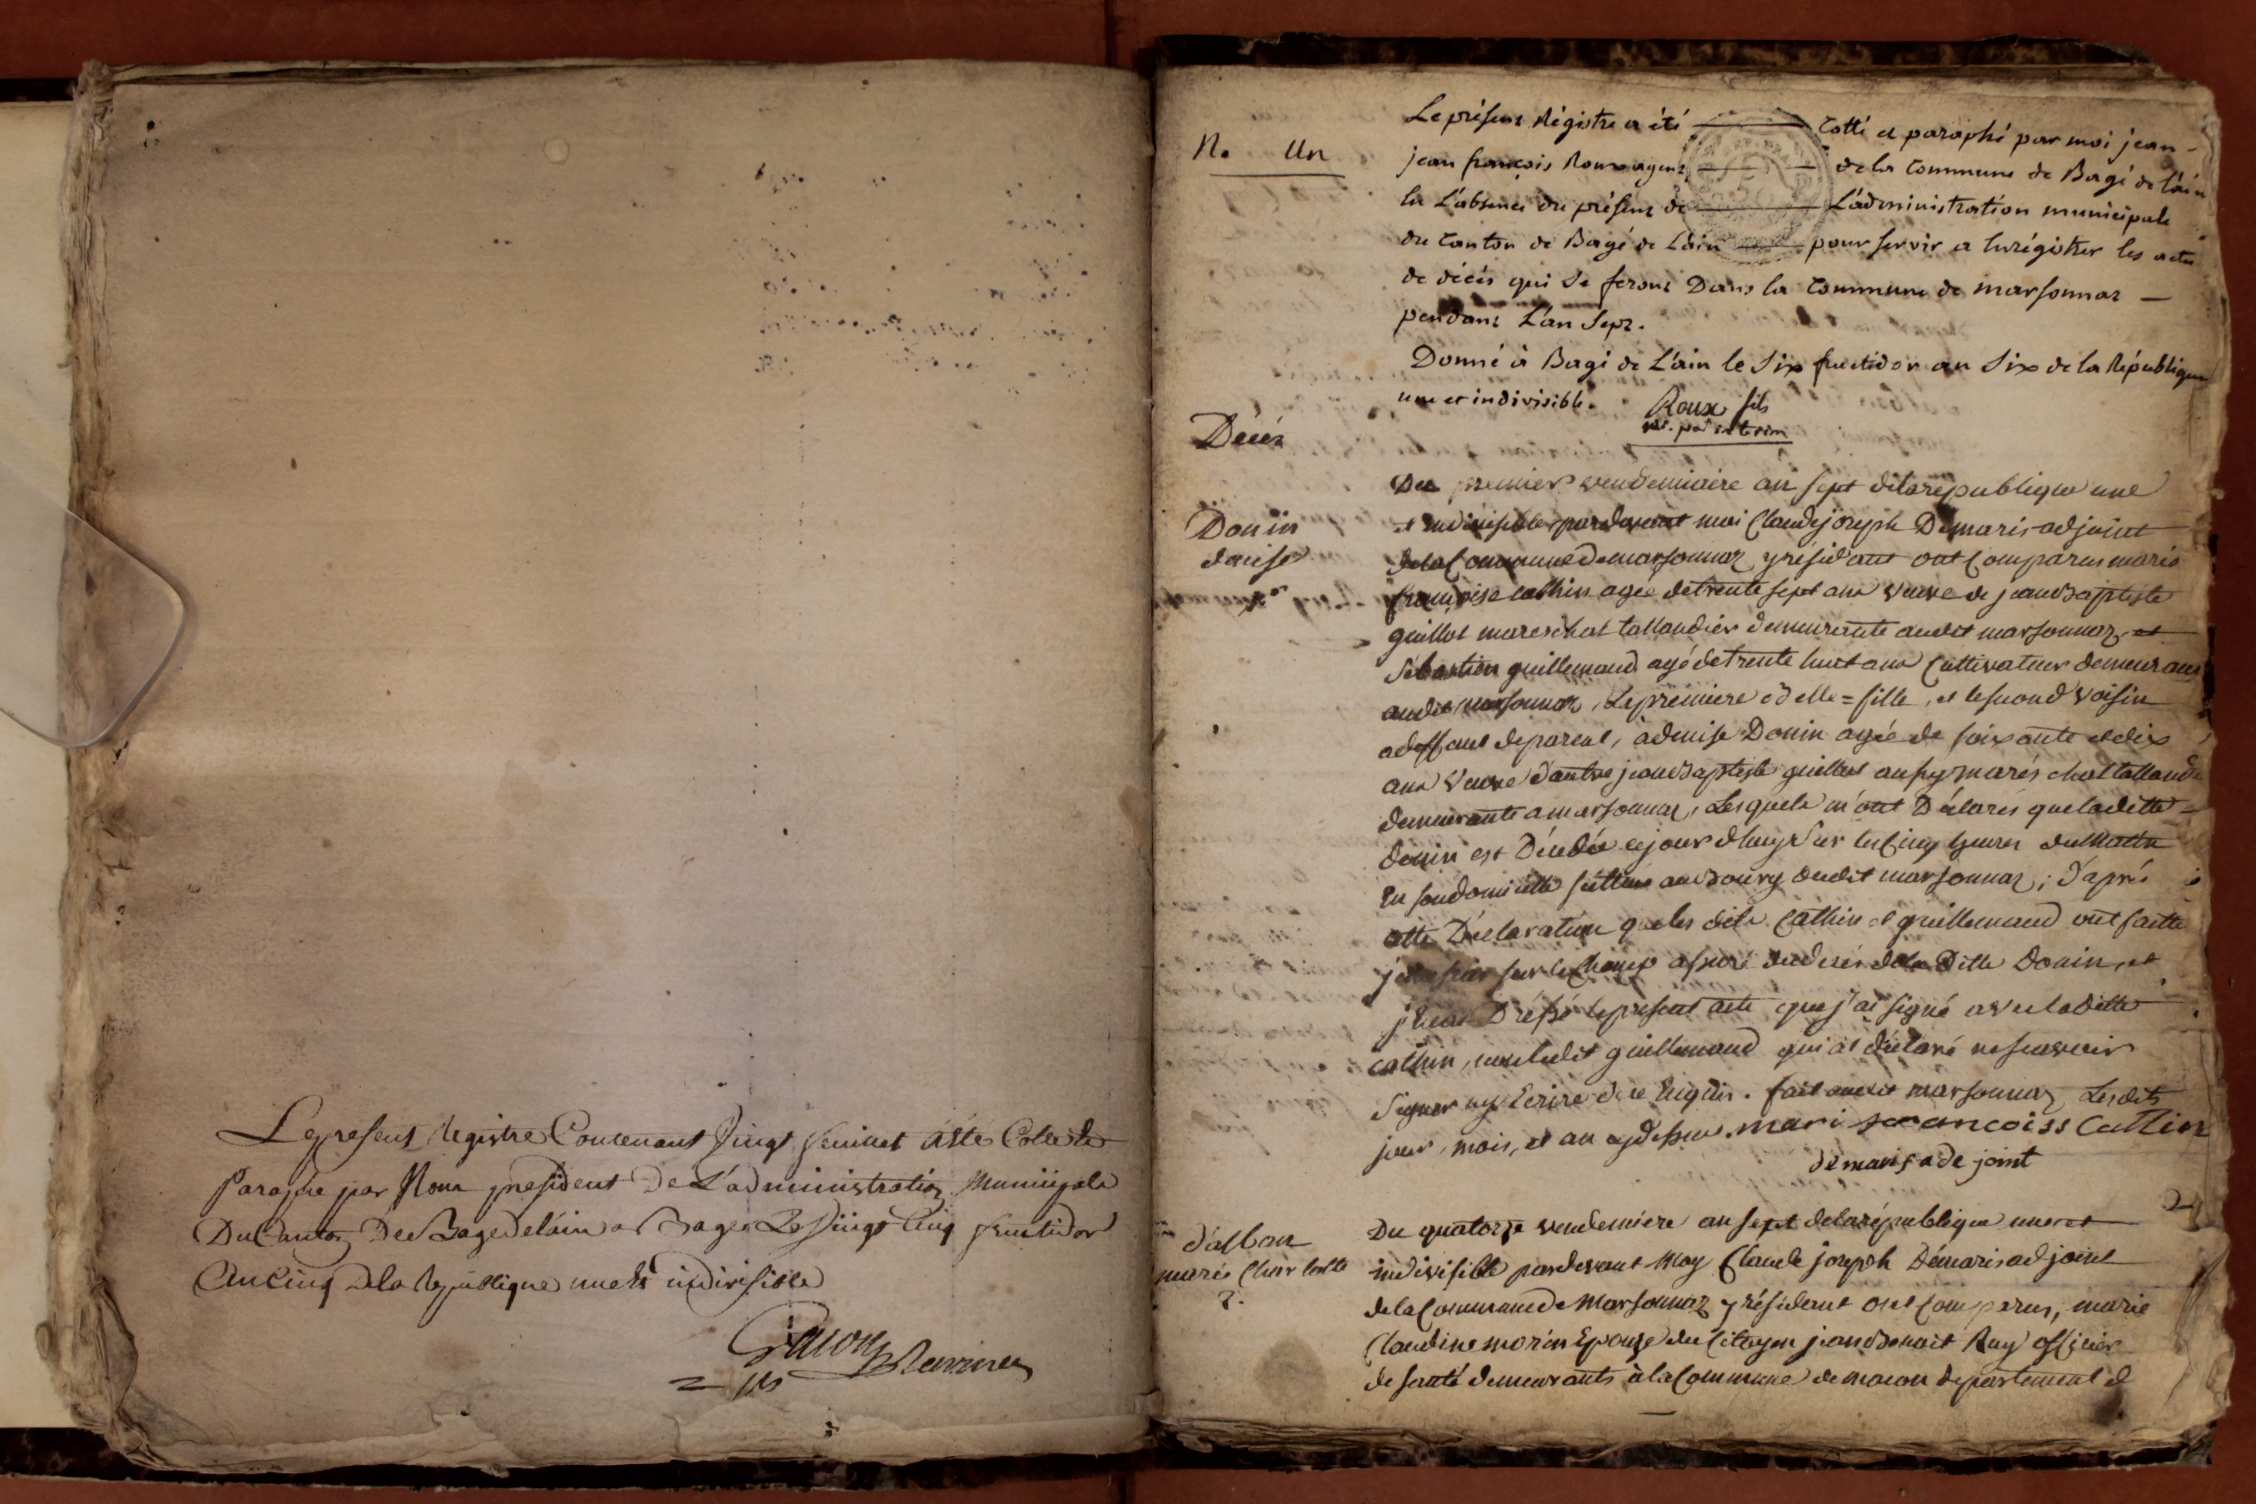 Le present Registre Contenant Vingt feuillet a été Cotté et
Paraphe par Nous president De L'administration Municipale
Du Canton De Bagé delain a Bagé Le Vingt Cinq fructidor
an Cinq Dela Republique une et indivisible
N. Un
Le présent Régistre a été Cotté et paraphé par moi jean
jean françois Roux agent de la Commune de Bagé de l'áin
En L'absence du présent de L'administration municipale
du Canton de Bagé de L'ain pour servir a Enrégistrer les actes
de décés qui Se feront Dans la Commune de marsonnas
pendant L'an Sept.
Donné à Bagé de L'ain le Six fructidor an Six de la République
une et indivisible. Roux fils
par interim
Décés
Donin
denise
Du premier vendemiaire an sept dela republique une
et indivisible pardevant moi Claude joseph Demaris adjoint
de la Commune de marsonnaz y résidant ont Comparus marie
françoise cathin agée de trente sept ans veuve de jean Baptiste
guillot mareschal tallandier demeurante audit marsonnaz et
Sébastien guillemaud agé de trente huit ans Cultivateur demeurant
audit marsonnaz, La premiere belle = fille, et le second voisin
a deffaut de parent, à denise Donin agée de soixante et dix
ans veuve d'autre jean Baptiste guillot aussy maréschal talland
demeurante a marsonnaz, Lesquels m'ont Déclarés que laditte
donin est Décédée ce jour d'huy Sur les Cinq heures du Matin
En son domicille scittue au Bourg dudit marsonnaz; d'aprés
cette Déclaration que les dits Cathin et guillemaud ont faitte
je me suis sur le Champ assuré du decés de la Ditte Donin, et
j'en ai Dréssé le present acte que j'ai signé avec la ditte
cathin, non ledit guillemaud qui a déclaré ne scavoir
Signer ny Ecrire de ce Enquis. fait audit marsonnaz Lesdits
jour, mois, et an cy dessus. mari francoiss Catin
demaris adejoint
d'alban
marie Charlotte
2.
Du quatorze vendemiere an sept dela république une et
indivisible pardevant Moy Claude joseph Démaris adjoint
de la Commune de Marsonnaz y résidant ont Comparus, marie
Claudine morin Epouze du Citoyen jean Benoit Ruy officier
de santé demeurants à la Commune de macon departement d